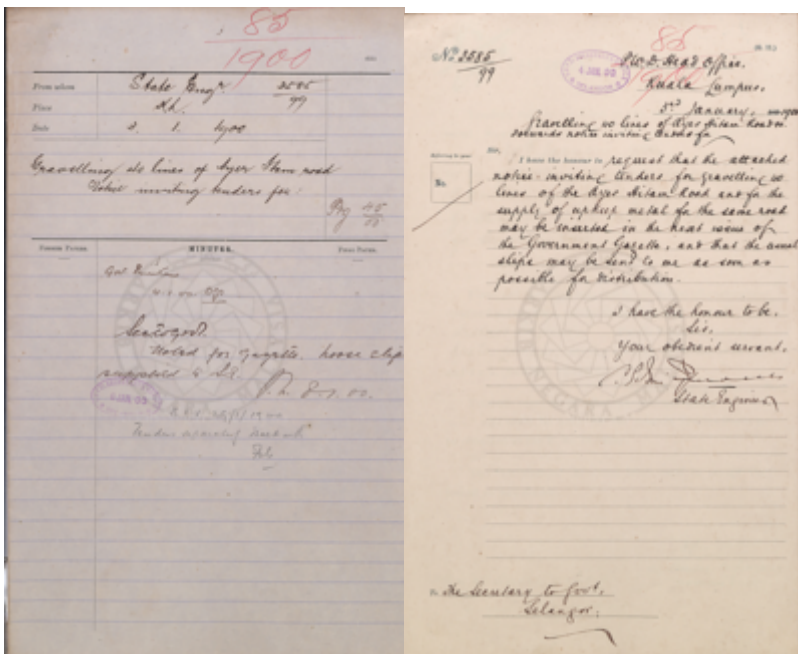 85
1900
From whom State Engr. 2585
99
Place K.L.
Date 3. 1. 1900
Gravelling 20 lines of Ayer Itam road
Notice inviting tenders for:
MINUTES.
Sec to Govt.
Noted for gazette. loose slips
supplied to S.E.
4 JAN. 00
85
1900
No 2585
99
P.W.D. Head Office.
Kuala Lumpur.
3rd January, 1900
4 JAN. 00
Gravelling 20 lines of Ayer Hitam Road
forwards notice inviting tenders for
Sir,
I have the honour to request that the attached
notice inviting tenders for gravelling 20
lines of the Ayer Hitam Road and for the
supply of upkeep metal for the same road
may be inserted in the next issue of
the Government Gazette, and that the usual
slips may be sent to me as soon as
possible for distribution.
No.
I have the honour to be,
Sir,
Your obedient servant,
State Engineer
The Secretary to Govt.
Selangor.